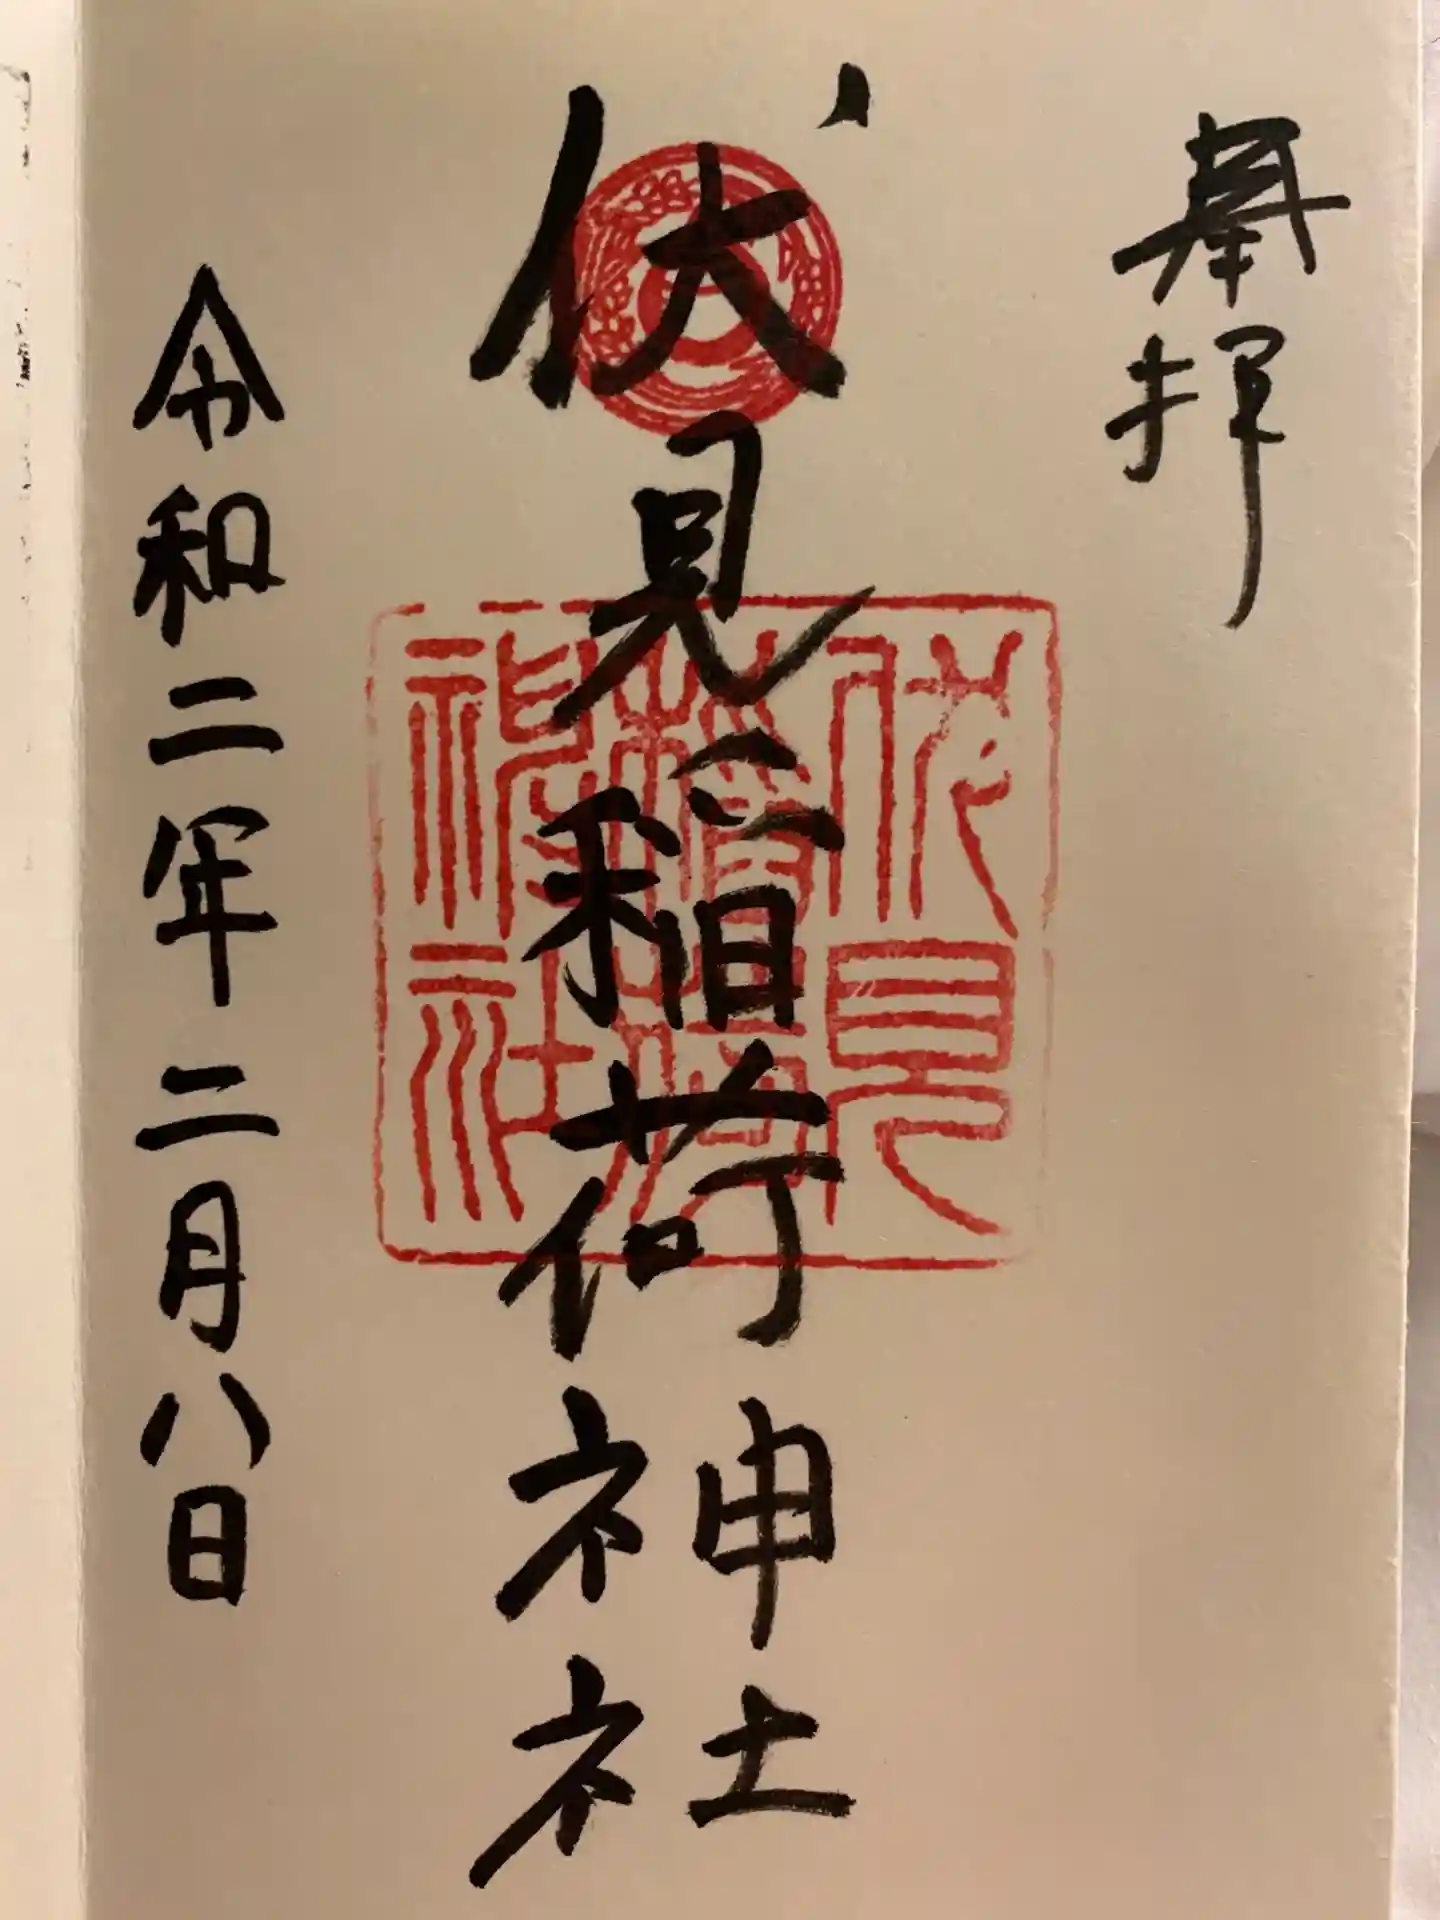 奉拝
伏見稲荷神社
伏見
稲荷
神社
令和二年二月八日